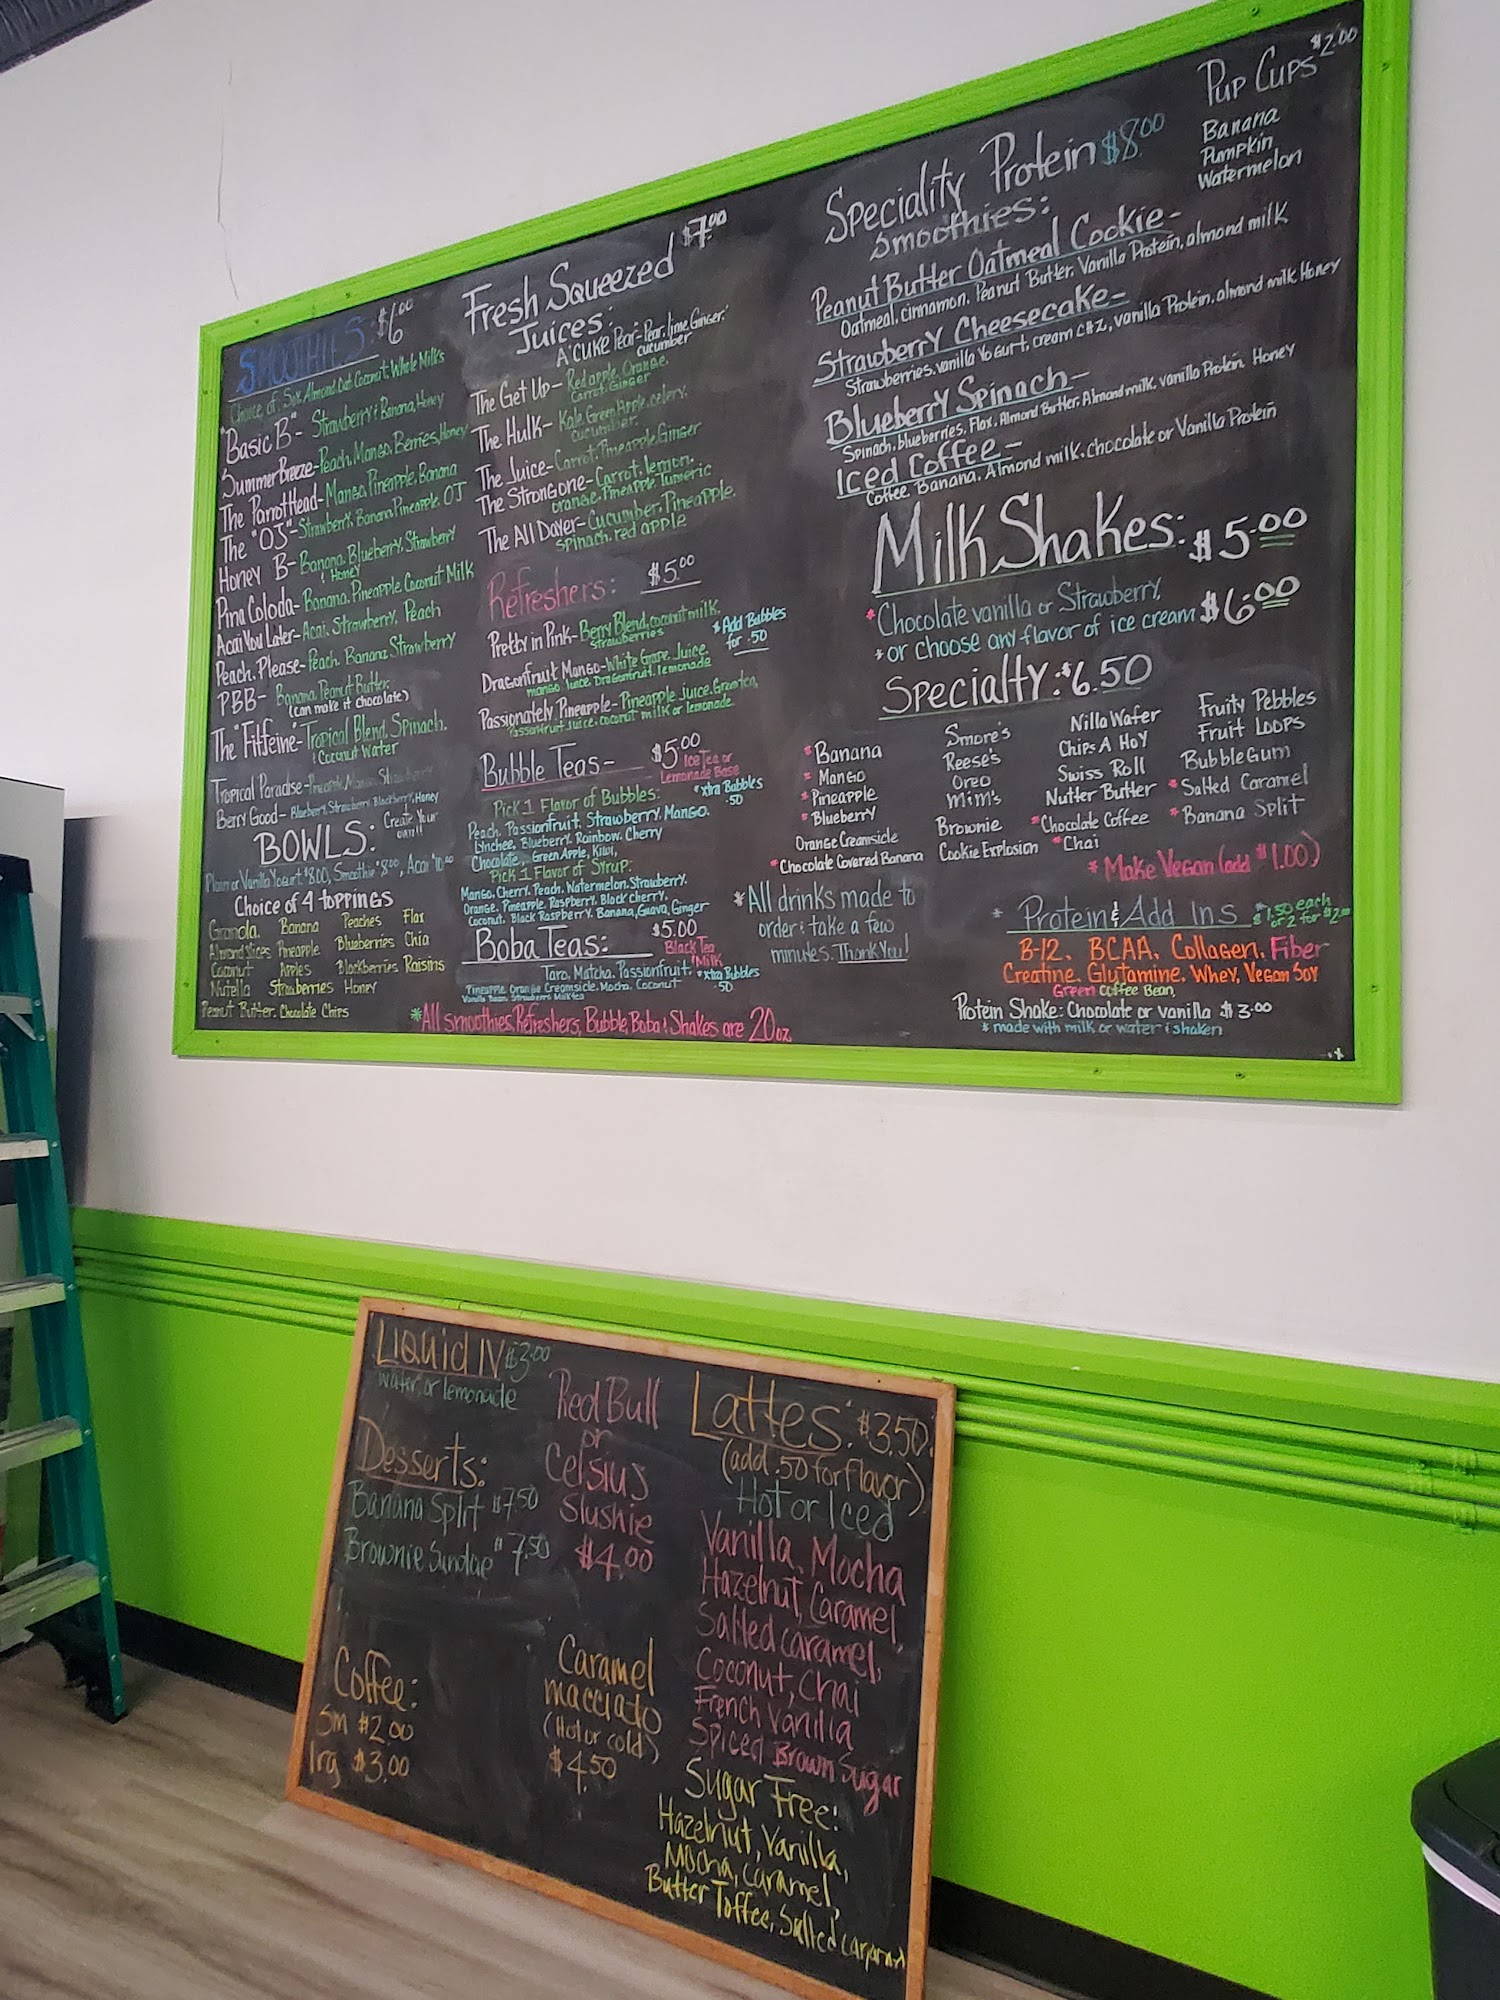 SMOOTHIES: $6.00
Choice of: Soy, Almond, Oat, Coconut, Whole Milks
*Basic B"- Strawberry & Banana, Honey
Summer Breeze- Peach, Mango, Berries, Honey
The ParrotHead- Mango, Pineapple, Banana
The "OJ"- Strawberry, Banana, Pineapple, OJ
Honey B- Banana, Blueberry, Strawberry
& Honey
Pina Coloda- Banana, Pineapple, Coconut Milk
Acai You Later- Acai, Strawberry, Peach
Peach, Please- Peach, Banana, Strawberry
PBB- Banana, Peanut Butter,
(can make it chocolate)
The "Fitfeine"- Tropical Blend, Spinach,
& Coconut Water
Tropical Paradise- Pineapple, Mango, Strawberry
Berry Good- Blueberry, Strawberry, Blackberry, Honey
BOWLS: Create Your
own!!
Plain or Vanilla Yogurt $8.00, Smoothie $8.00, Acai $10.00
Choice of 4 toppings
Granola, Banana Peaches Flax
Almond Slices Pineapple Blueberries Chia
Coconut Apples Blackberries Raisins
Nutella Strawberries Honey
Peanut Butter, Chocolate Chips
Fresh Squeezed $7.00
Juices:
A'CUKE Pear- Pear, lime, Ginger,
cucumber
The Get Up- Red apple, Orange,
Carrot, Ginger
The Hulk- Kale, Green Apple, celery,
cucumber.
The Juice- Carrot, Pineapple, Ginger
The Strongone- Carrot, lemon,
orange, Pineapple, Tumeric
The All Dayer- Cucumber, Pineapple,
Spinach, red apple
Refreshers: $5.00
Pretty in Pink- Berry Blend, coconut milk,
strawberries
*Add Bubbles
for .50
Dragonfruit Mango- White Grape Juice,
mango juice, Dragonfruit, lemonade
Passionately Pineapple- Pineapple Juice, Green tea,
Passionfruit Juice, coconut milk or lemonade
Bubble Teas- $5.00
Ice Tea or
Lemonade Base
Pick 1 Flavor of Bubbles:
*xtra Bubbles
.50
Peach, Passionfruit, Strawberry, Mango,
Lynchee, Blueberry, Rainbow, Cherry
Chocolate, Green Apple, Kiwi,
Pick 1 Flavor of Syrup:
Mango, Cherry, Peach, Watermelon, Strawberry,
Orange, Pineapple, Raspberry, Black Cherry,
Coconut, Black Raspberry, Banana, Guava, Ginger
Boba Teas: $5.00
Black Tea
*Milk
Taro, Matcha, Passionfruit,
*xtra Bubbles
.50
Pineapple, Orange Creamsicle, Mocha, Coconut
Vanilla Bean, Strawberry Milktea
*All smoothies, Refreshers, Bubble, Boba & Shakes are 20oz.
Pup Cups $2.00
Banana
Pumpkin
Watermelon
Speciality Protein $8.00
Smoothies:
Peanut Butter Oatmeal Cookie-
Oatmeal, cinnamon, Peanut Butter, Vanilla Protein, almond milk
Strawberry Cheesecake-
Strawberries, vanilla Yogurt, cream chz, vanilla Protein, almond milk, Honey
Blueberry Spinach-
Spinach, blueberries, Flax, Almond Butter, Almond milk, vanilla Protein, Honey
Iced Coffee-
Coffee, Banana, Almond milk, chocolate or Vanilla Protein
MilkShakes: $5.00
*Chocolate vanilla or Strawberry,
*or choose any flavor of ice cream $6.00
Specialty: $6.50
*Banana
*Mango
*Pineapple
*Blueberry
Orange Creamsicle
*Chocolate Covered Banana
Smore's
Reese's
Oreo
Mim's
Brownie
Cookie Explosion
Nilla Wafer
Chips A Hoy
Swiss Roll
Nutter Butter
*Chocolate Coffee
*Chai
Fruity Pebbles
Fruit Loops
BubbleGum
*Salted Caramel
*Banana Split
*Make Vegan (add $1.00)
*All drinks made to
order & take a few
minutes. Thank You!
*Protein & Add Ins $1.50 each
or 2 for $2.00
B-12, BCAA, Collagen, Fiber
Creatine, Glutamine, Whey, Vegan Soy
Green Coffee Bean,
Protein Shake: Chocolate or vanilla $3.00
*made with milk or water & shaken
Liquid IV $3.00
water or lemonade
Desserts:
Banana Split $7.50
Brownie Sundae $7.50
Coffee:
Sm $2.00
lrg $3.00
Red Bull
or
Celsius
Slushie
$4.00
Caramel
macciato
(Hot or cold)
$4.50
Lattes: $3.50
(add .50 for flavor)
Hot or Iced
Vanilla, Mocha
Hazelnut, Caramel,
Salted caramel,
Coconut, Chai
French Vanilla
Spiced Brown Sugar
Sugar Free:
Hazelnut, Vanilla,
Mocha, Caramel,
Butter Toffee, Salted Caramel